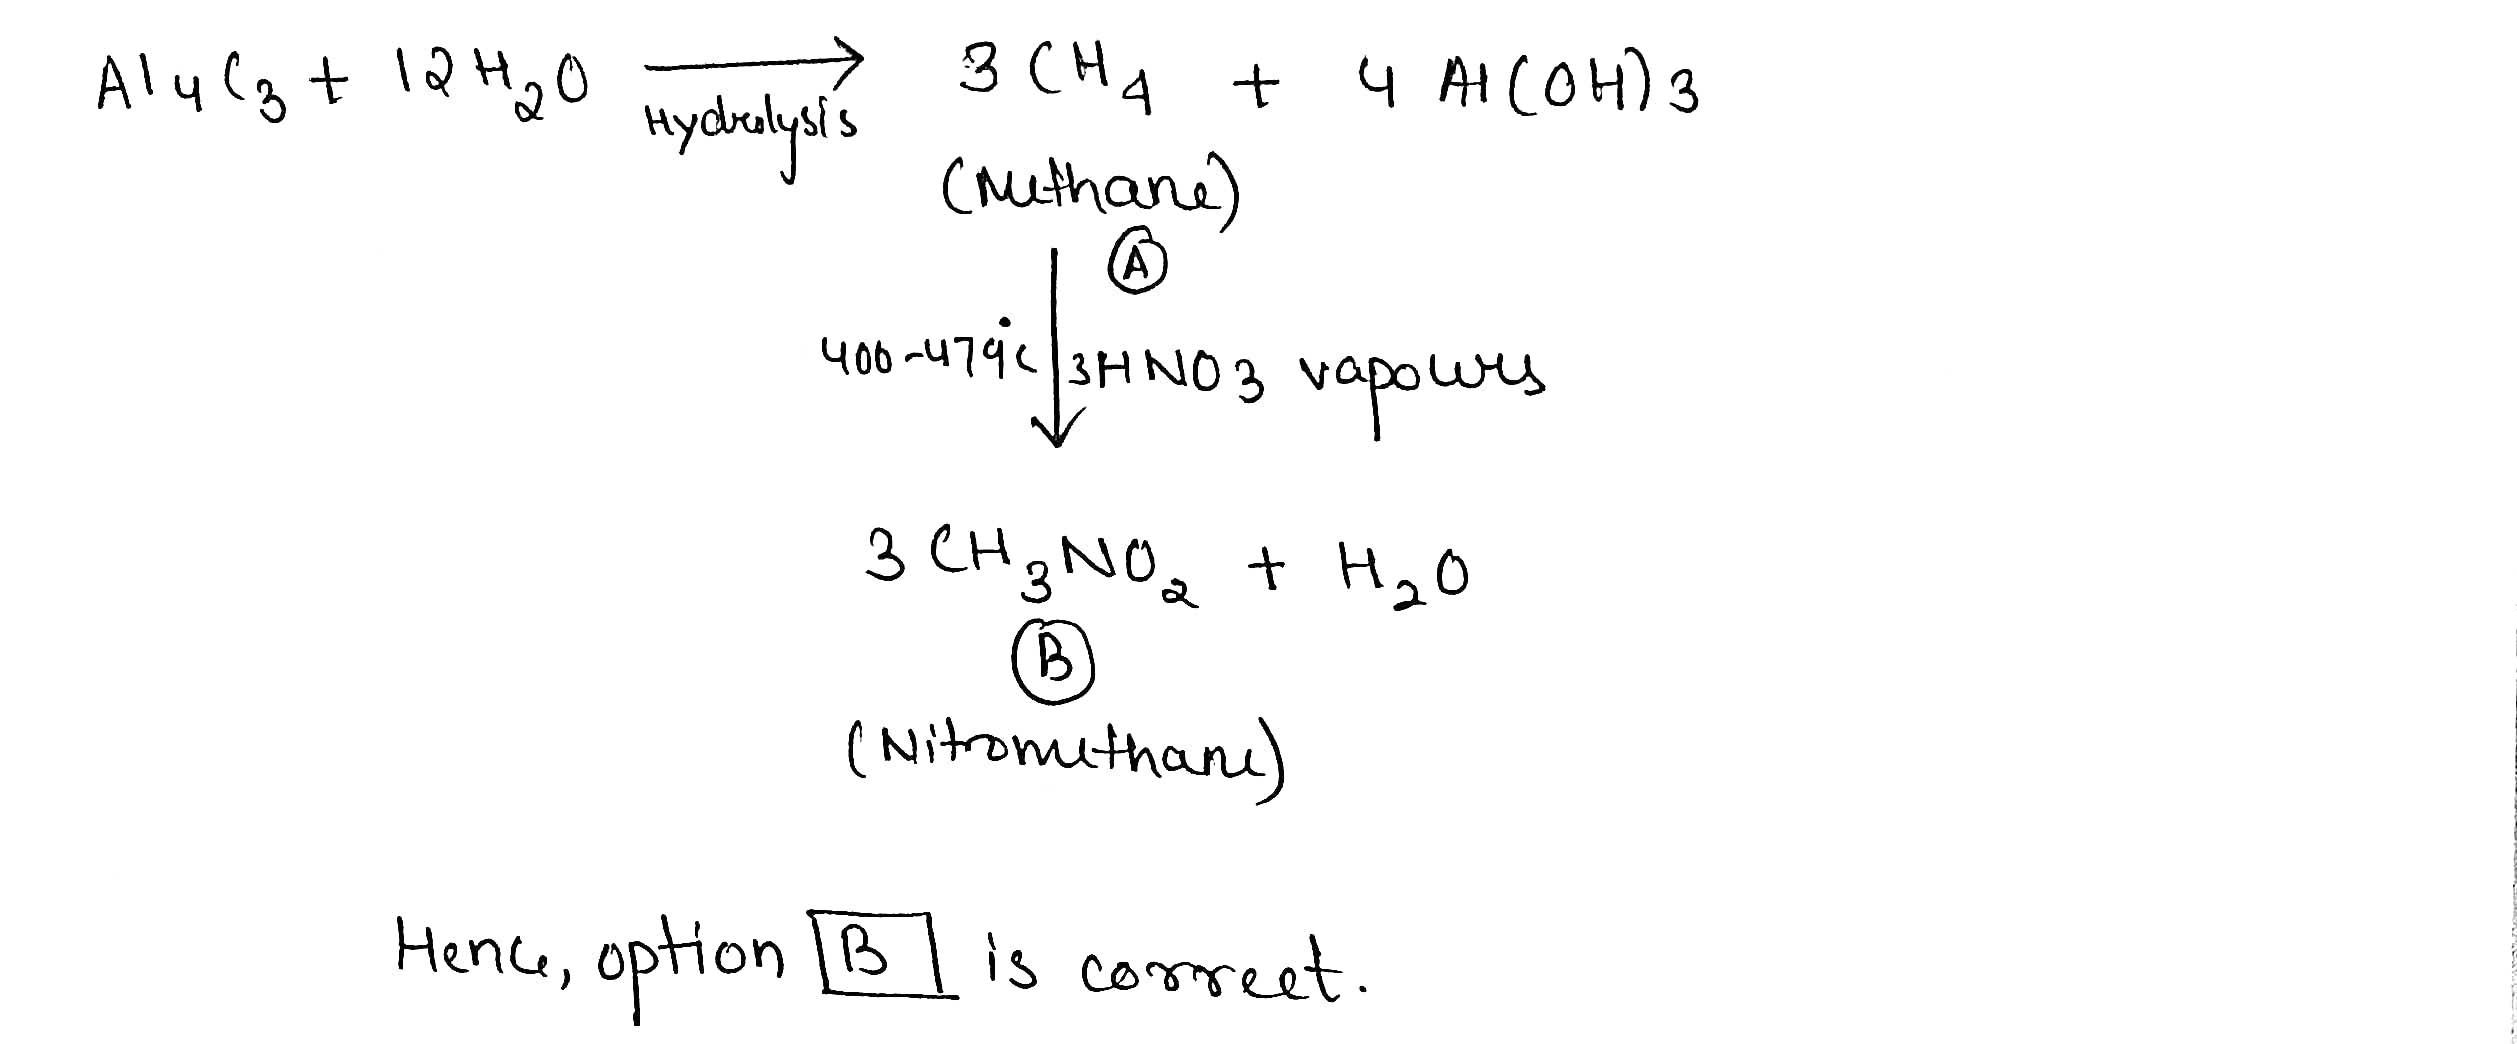 Al4C3 + 12H2O → 3CH4 + 4Al(OH)3
Hydrolysis
(Methane)
A
400-479°C 3HNO3 vapours
3CH3NO2 + H2O
B
(Nitromethane)
Hence, option B is correct.